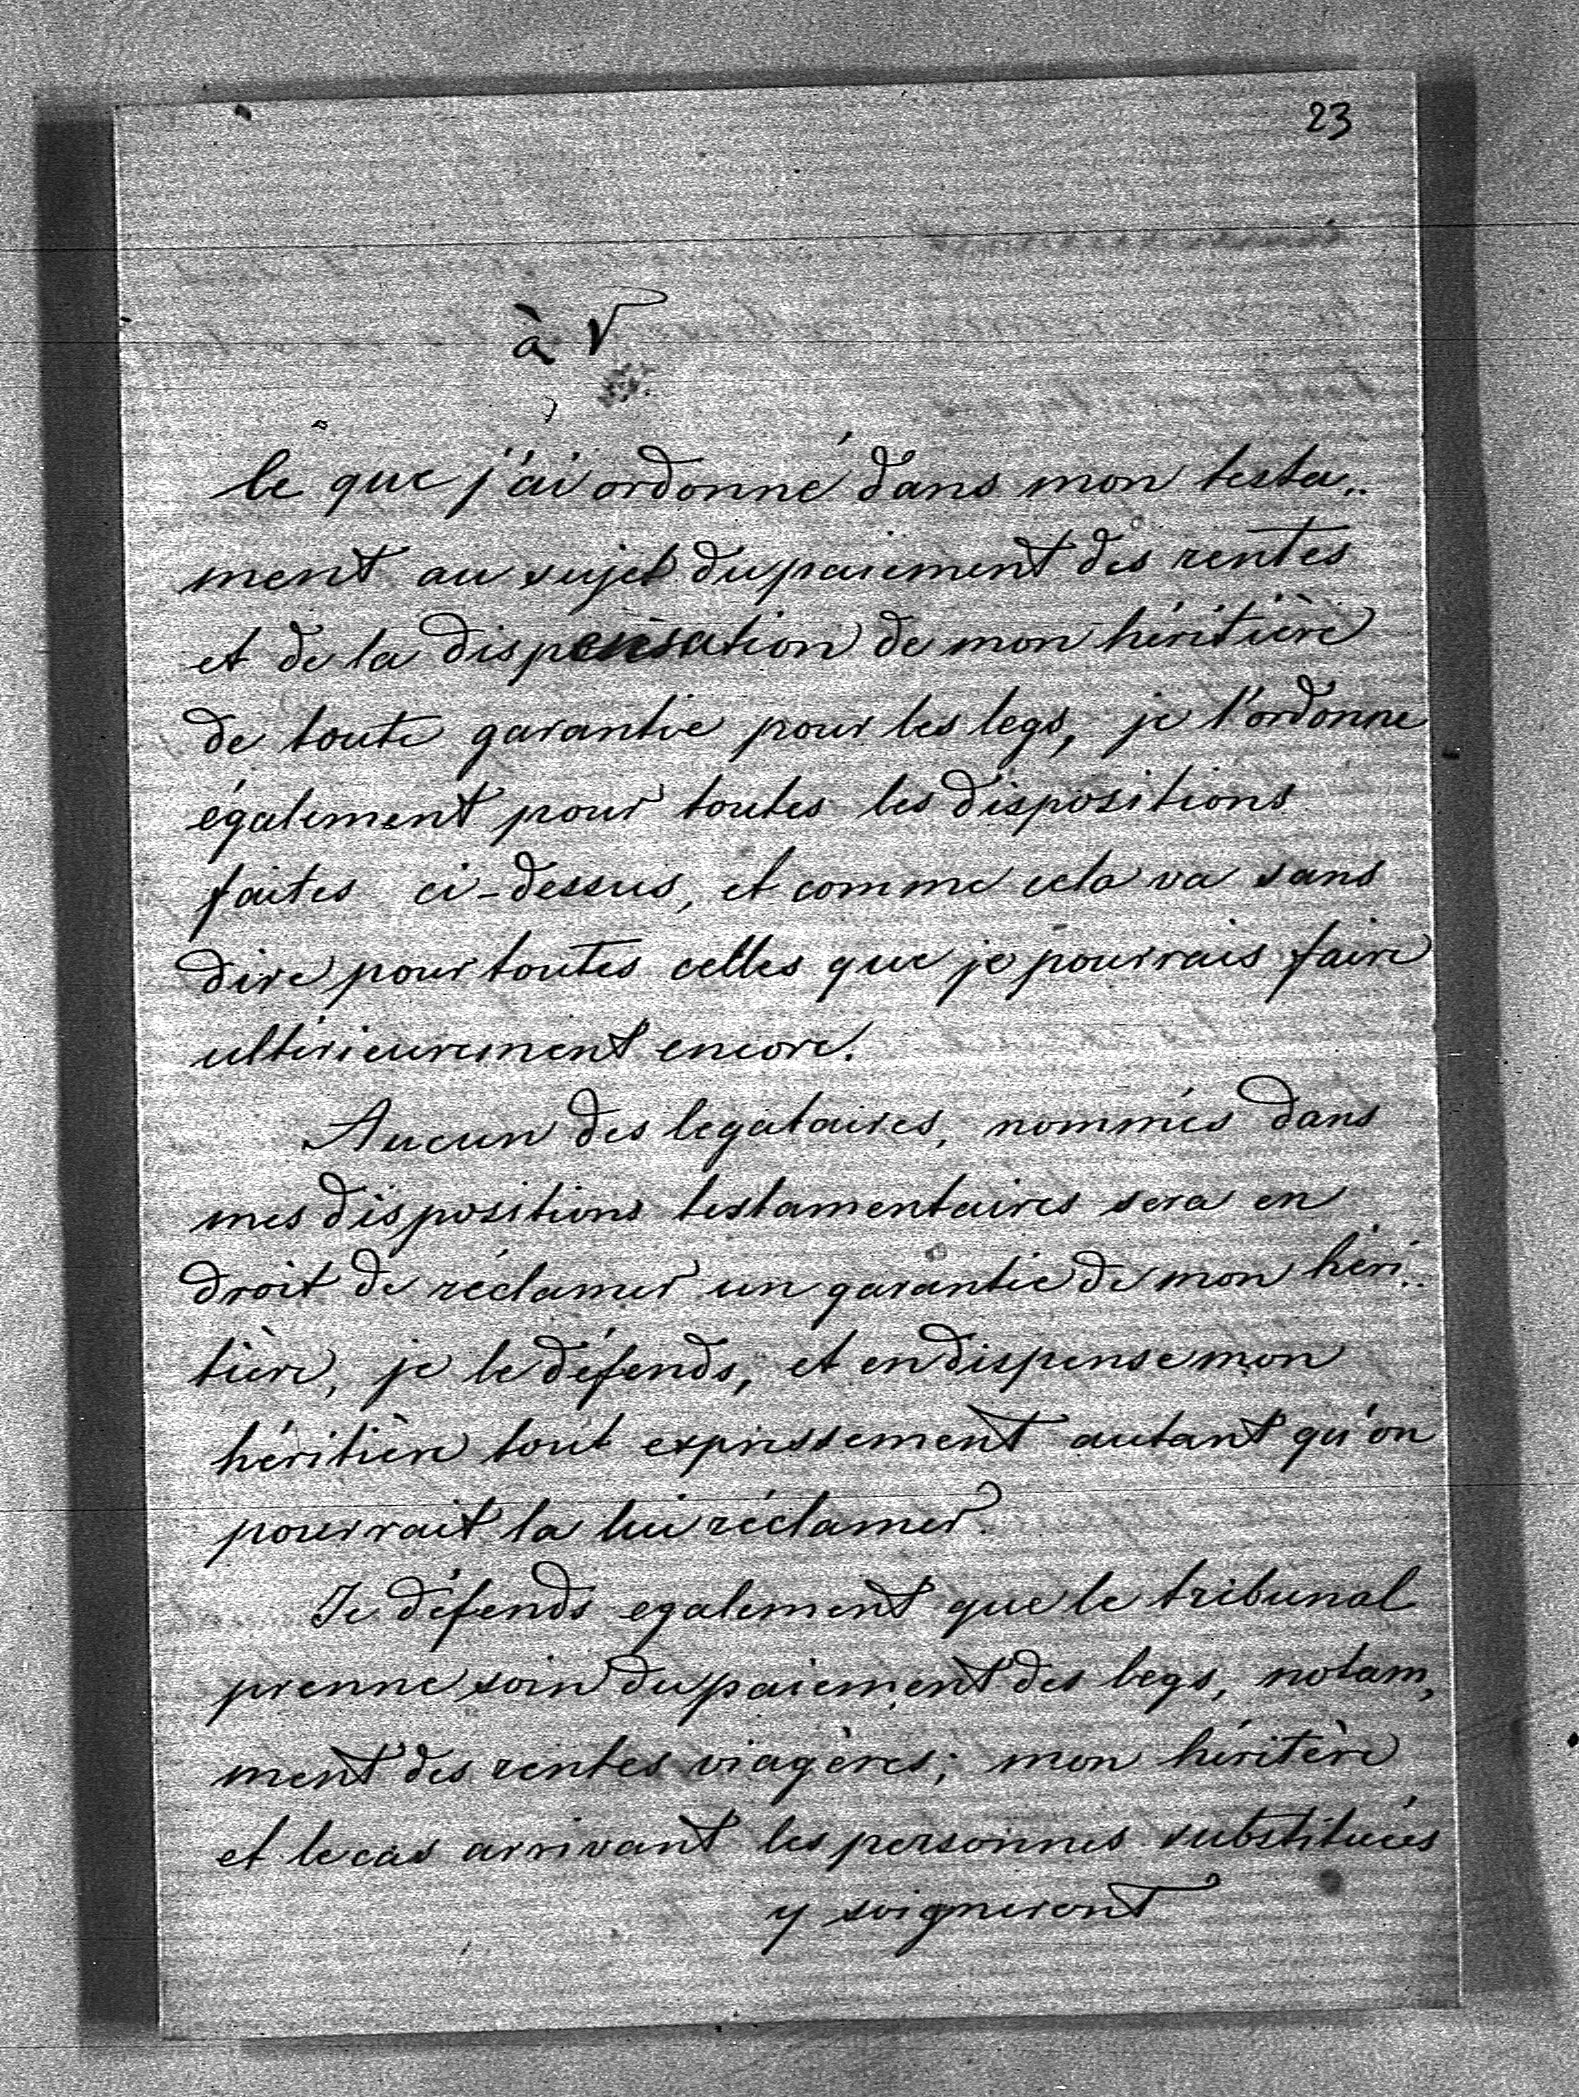 23
à V
Ce que j'ai ordonné dans mon testa..
ment au sujet du paiement des rentes
et de la dispensation de mon héritière
de toute garantie pour les legs, je l'ordonne
également pour toutes les dispositions
faites ci-dessus, et comme cela va sans
dire pour toutes celles que je pourrais faire
ultérieurement encore.
Aucun des legataires, nommés dans
mes dispositions testamentaires sera en
droit de réclamer un garantie de mon héri..
tière, je le défends, et en dispense mon
héritière tout expressement autant qu'on
pourrait la lui réclamer.
Je défends egalement que le tribunal
prenne soin du paiement des legs, notam,
ment des rentes viagères; mon héritère
et le cas arrivant les personnes substituées
y soigneront